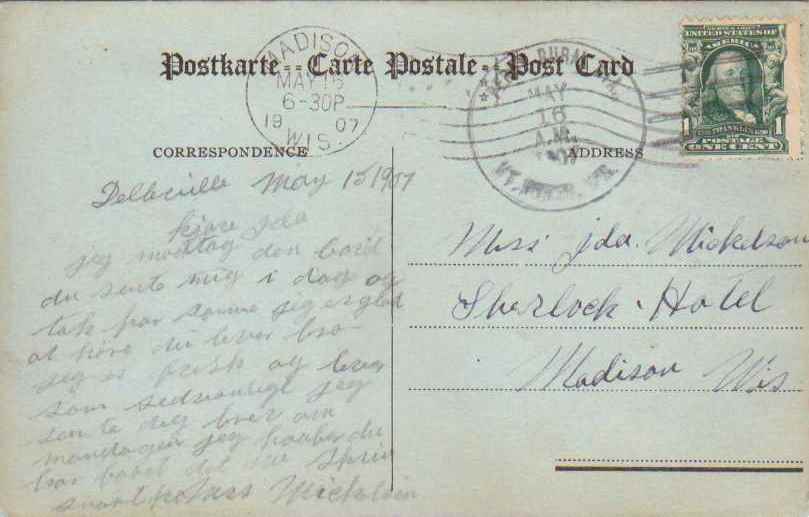 Postkarte -- Carte Postale -- Post Card
MADISON
MAY 15
6-30P
19 07
WIS.
MAY
16
A.M.
UNITED STATES OF
AMERICA
1 1
POSTAGE
ONE CENT
CORRESPONDENCE
ADDRESS
May 15 1907
kjære Ida
jeg modtog den kord
du sente mig i dag og
tak for samme jeg er glad
at høre du lever bra
jeg er frisk og lever
som sedvanligt jeg
sente dig brev om
mandagen jeg haaber du
har faaet det nu skriv
snart
Miss Ida. Mickelson
Sherlock Hotel
Madison Wis